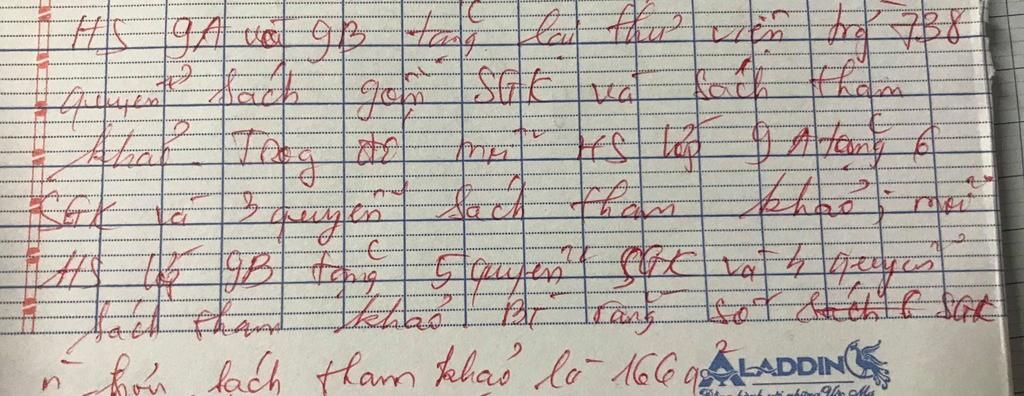 HS 9A và 9B tặng lại thư viện trg 738
quyển sách gồm SGK và sách tham
khảo. Trog đó mỗi HS lớp 9A tặng 6
SGK và 3 quyển sách tham khảo; mỗi
HS lớp 9B tặng 5 quyển SGK và 4 quyển
sách tham khảo. BT rằng số sách SGK
n` hơn sách tham khảo là 166 q
ALADDIN